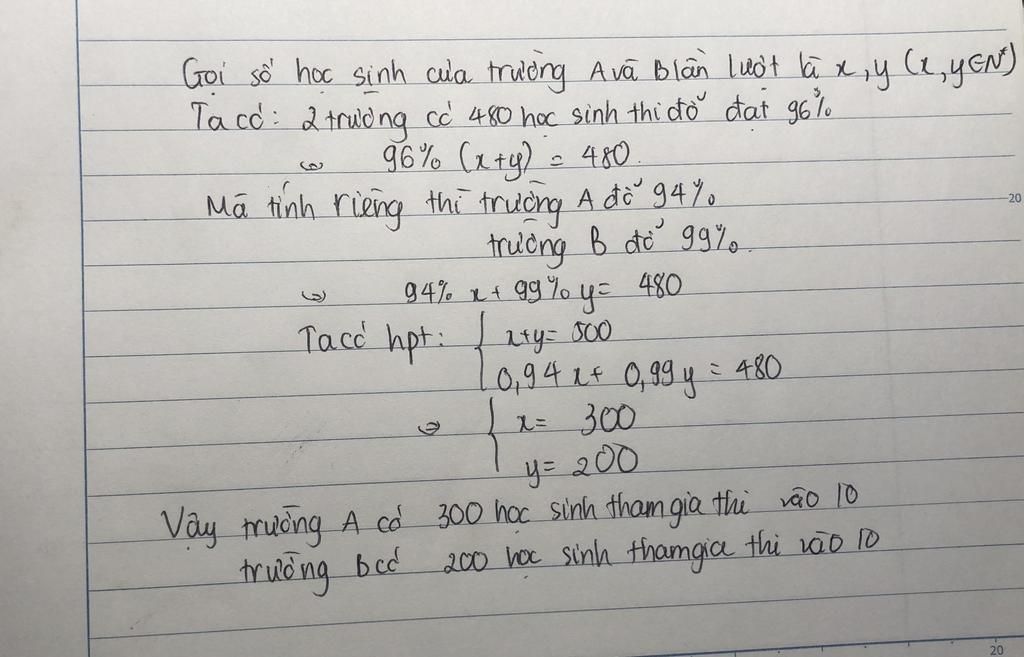 Gọi số học sinh của trường A và B lần lượt là x, y (x, y ∈ N*)
Ta có: 2 trường có 480 học sinh thi đỗ đạt 96%
⇔ 96% (x+y) = 480.
Mà tính riêng thì trường A đỗ 94%
trường B đỗ 99%.
⇔ 94% x + 99% y = 480
Ta có hpt: { x+y = 500
0,94x + 0,99y = 480
⇔ { x = 300
y = 200
Vậy trường A có 300 học sinh tham gia thi vào 10
trường B có 200 học sinh tham gia thi vào 10
20
20